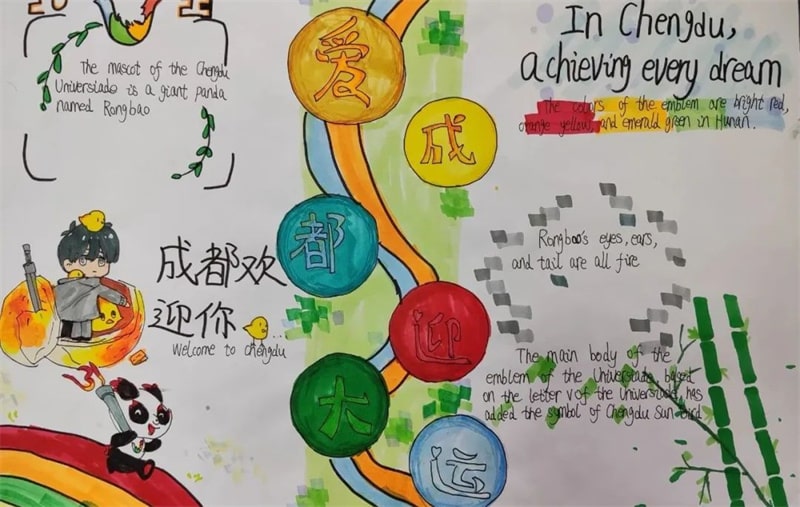 The mascot of the Chengdu
Universiade is a giant panda
named Rongbao
爱
成
都
迎
大
运
In Chengdu,
achieving every dream
The colors of the emblem are bright red,
orange yellow, and emerald green in Hunan.
Rongbao's eyes, ears,
and tail are all fire
成都欢
迎你
Welcome to chengdu
The main body of the
emblem of the Universiade, based
on the letter V of the Universiade, has
added the symbol of Chengdu Sun bird